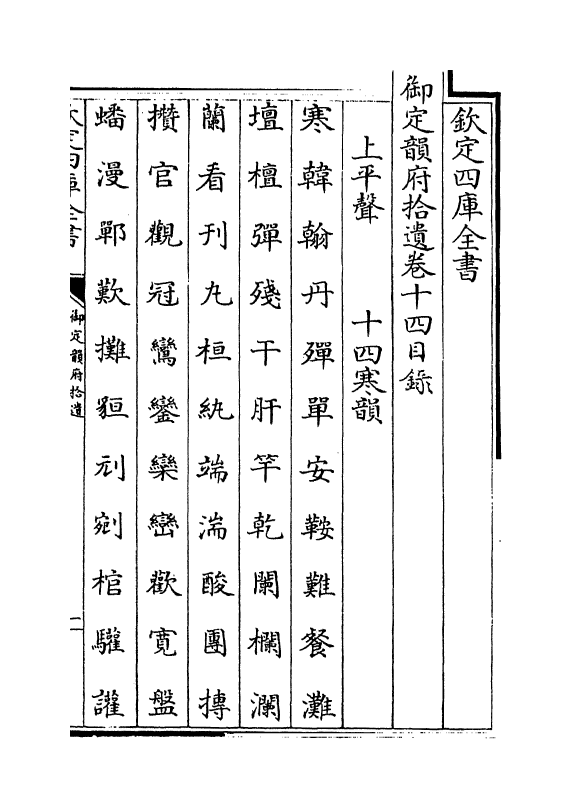 欽定四庫全書
御定韻府拾遺卷十四目錄
上平聲　十四寒韻
寒韓翰丹殫單安鞍難餐灘
壇檀彈殘干肝竿乾闌欄瀾
蘭看刊丸桓紈端湍酸團摶
攢官觀冠鸞鑾欒巒歡寬盤
蟠漫鄲歎攤貆刓剜棺驩讙
欽定四庫全書
御定韻府拾遺
一